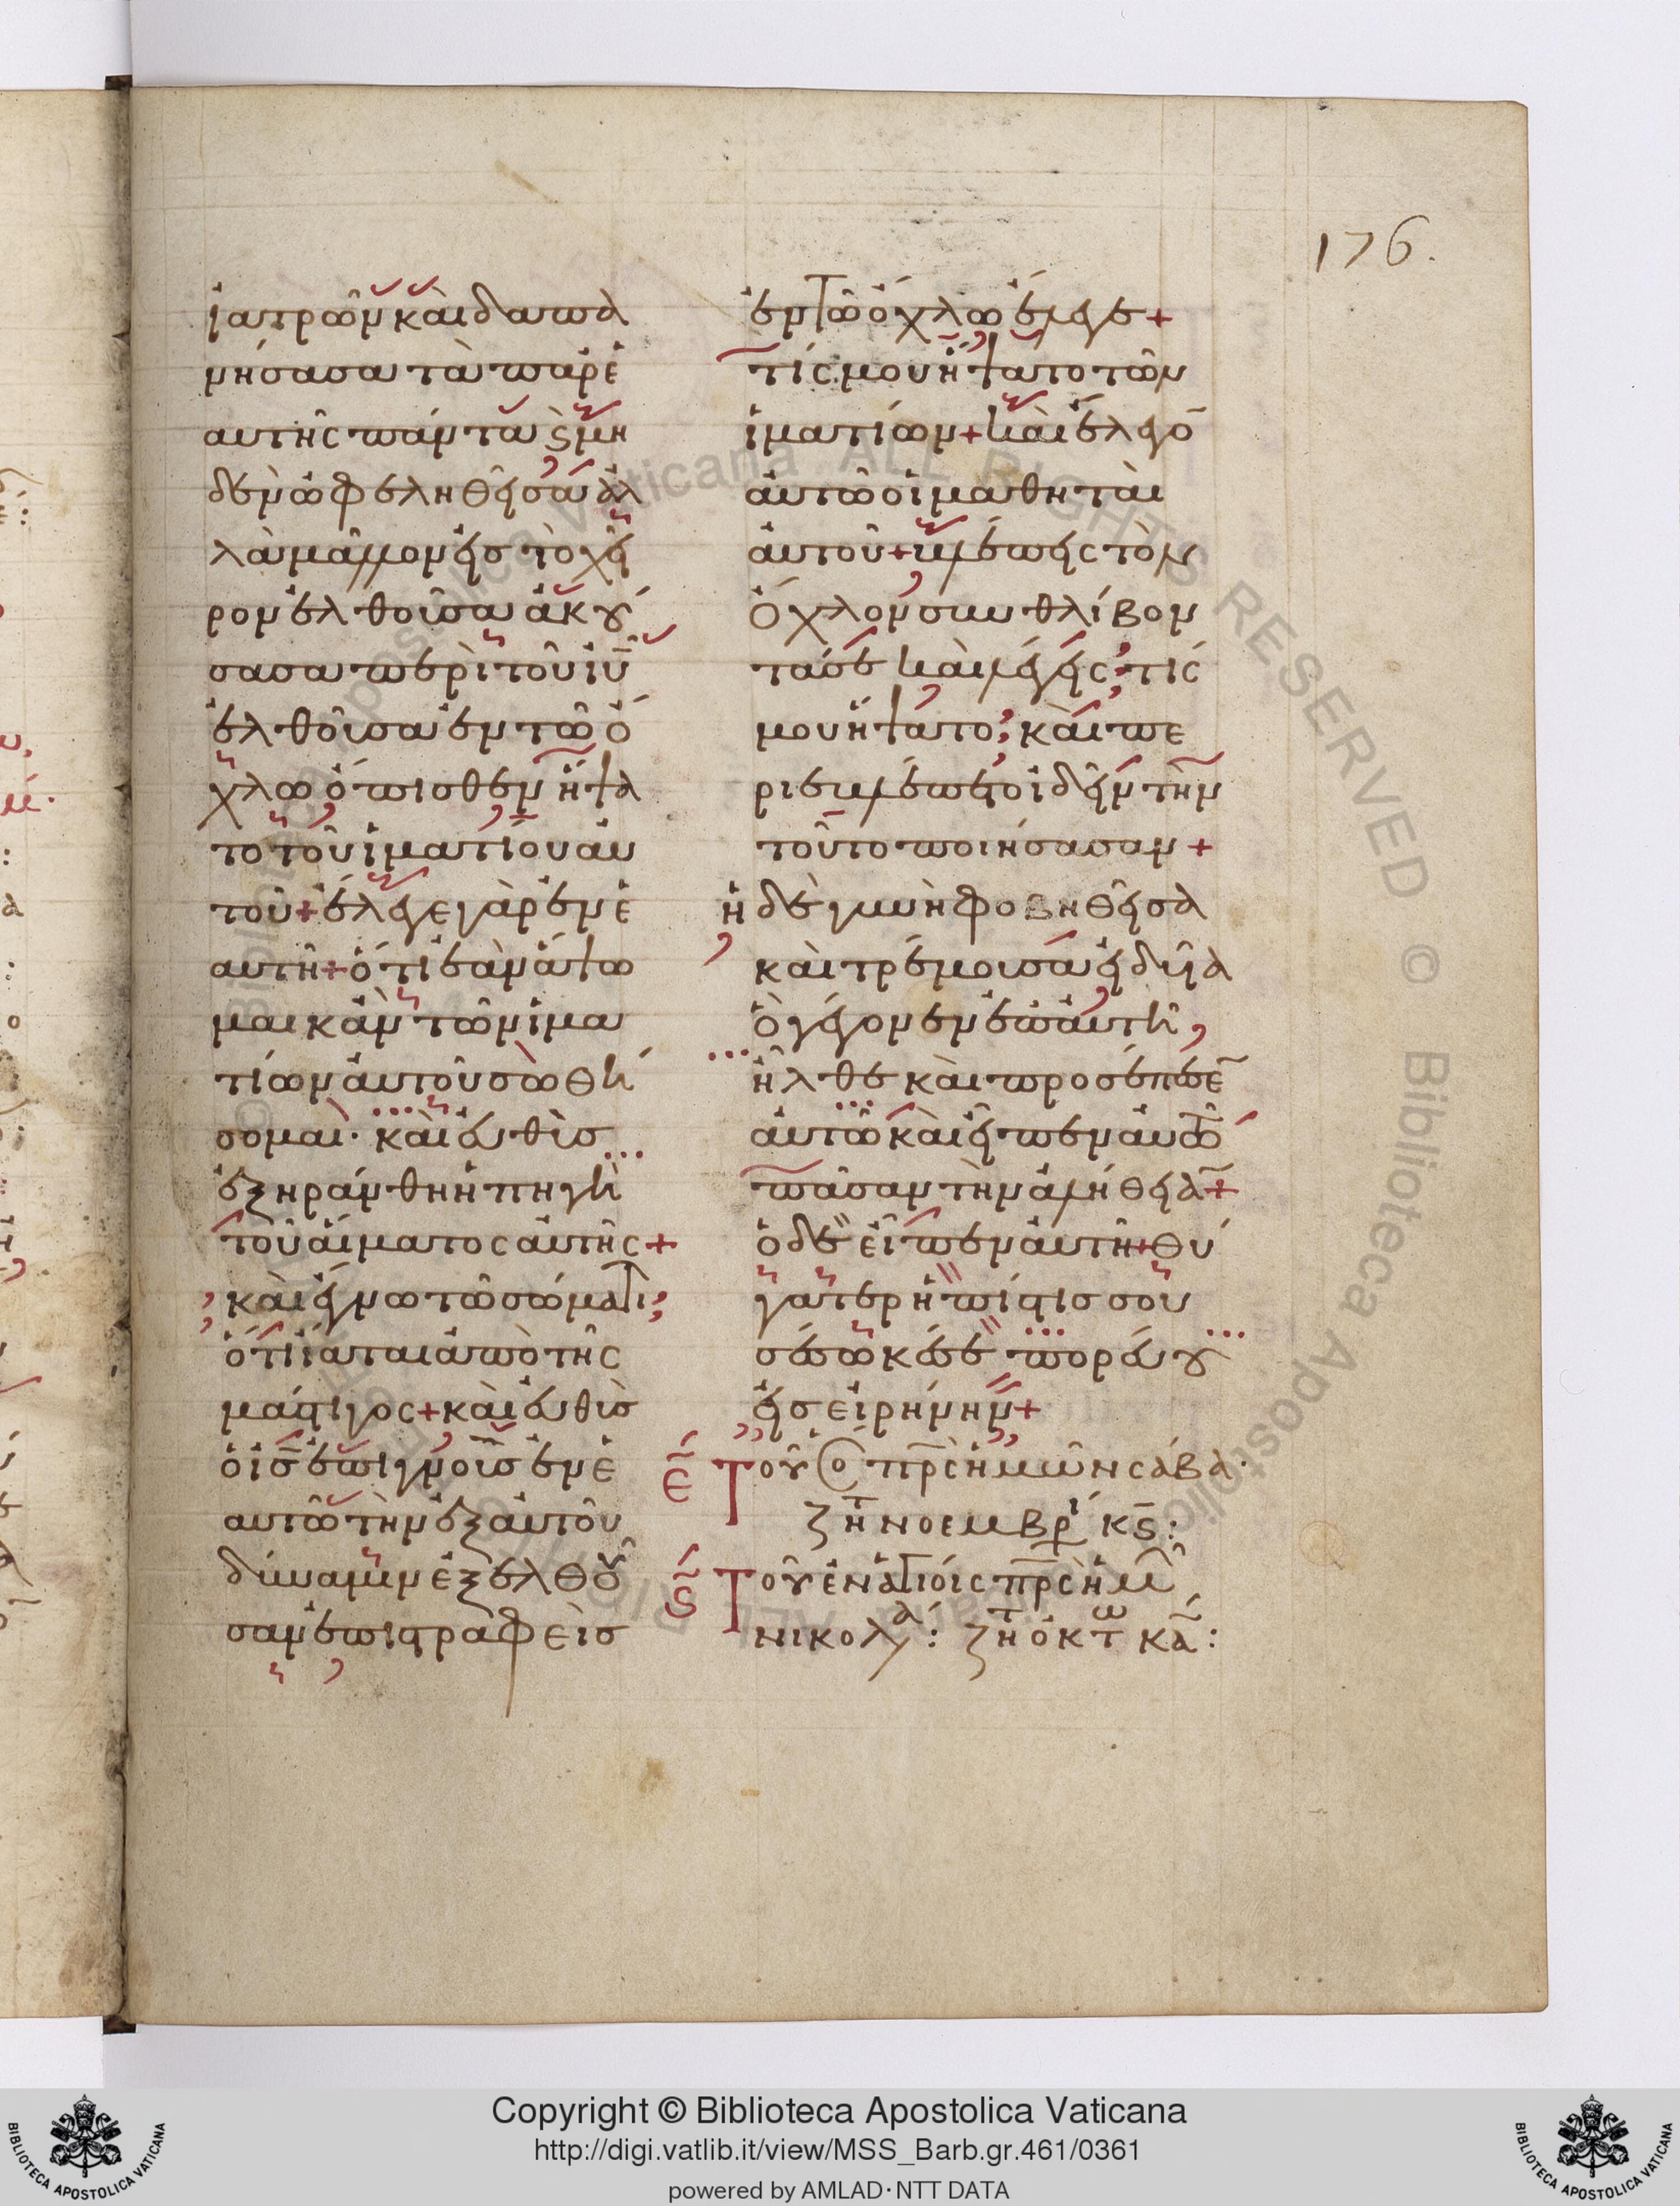 176.
ἰατρῶν καὶ δαπα
νήσασα τὰ παρ ἑ
αυτῆς πάντα ϛ μη
δὲν ὠφεληθεῖσα ἀλ
λὰ μᾶλλον εἰσ τὸ χεῖ
ρον ἐλθοῦσα ἀκού
σασα περὶ τοῦ ιυ̅
ἐλθοῦσα ἐν τῶ ὄ
χλω ὄπισθεν ἥψα
το τοῦ ἱματίου αὐ
τοῦ + ἔλεγε γὰρ ἐν ἑ
αυτῆ + ὅτι ἐὰν ἅψω
μαι κἂν τῶν ἱμα
τίων αὐτοῦ σωθή
σομαι · καὶ εὐθὺσ
ἐξηράνθη ἡ πηγὴ
τοῦ αἵματος αὐτῆς +
καὶ ἔγνω τῶ σώματι
ὅτι ἴαται ἀπὸ τῆς
μάστιγος + καὶ εὐθὺσ
ὁ ισ̅ ἐπιγνοὺσ ἐν ἑ
αυτῶ τὴν ἐξ αὐτοῦ
δύναμιν ἐξελθοῦ
σαν ἐπιστραφεὶσ
ἐν τῶ ὄχλω ἔλεγε +
τίς μου ἥψατο τῶν
ἱματίων + καὶ ἔλεγο̅
αὐτῶ οἱ μαθηταὶ
αὐτοῦ + βλέπεις τὸν
ὄχλον συνθλίβον
τά σε καὶ λέγεις τίς
μου ἥψατο καὶ πε
ριεβλέπετο ἰδεῖν τὴν
τοῦτο ποιήσασαν +
ἡ δὲ γυνὴ φοβηθεῖσα
καὶ τρέμουσα εἰδυῖα
ὃ γέγονεν ἐπ αὐτῆ
ἦλθε καὶ προσέπεσε̅
αὐτῶ καὶ εἶπεν αὐτῶ
πᾶσαν τὴν ἀλήθεια̅ +
ὁ δὲ εἶπεν αὐτῆ + θύ
γατερ ἡ πίστισ σου
σέσωκέ σε πορεύου
εἰσ εἰρήνην +
ε̅ Τοῦ ὁ πρ̅ς ἡμῶν σάβα ·
ζητ νοεμβρί κϛ̅ :
ϛ̅ Τοῦ ἐν ἁγίοις πρ̅ς ἡμῶ
νικολά : ζητ ὀκτω κα̅ :
Copyright © Biblioteca Apostolica Vaticana
http://digi.vatlib.it/view/MSS_Barb.gr.461/0361
powered by AMLAD·NTT DATA
BIBLIOTECA APOSTOLICA VATICANA
BIBLIOTECA APOSTOLICA VATICANA